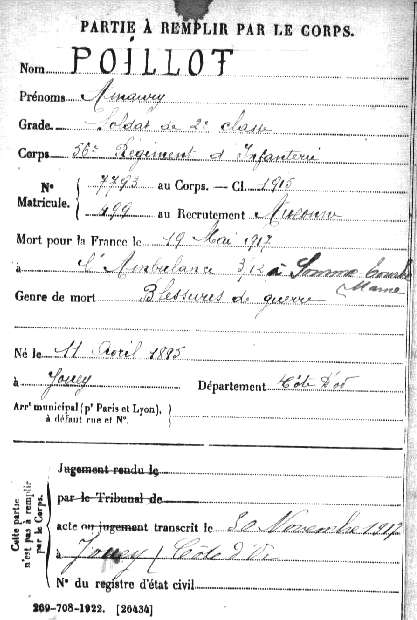 PARTIE À REMPLIR PAR LE CORPS.
Nom POILLOT
Prénoms Amaury
Grade Soldat de 2e classe
Corps 56e Régiment d'Infanterie
N° Matricule. { 7793 au Corps. — Cl. 1915
499 au Recrutement
Mort pour la France le 19 Mai 1917
à l'Ambulance 3/12 à Somme
Marne
Genre de mort Blessures de guerre
Né le 11 Avril 1895
à Jouey Département Côte d'Or
Arrt municipal (pr Paris et Lyon), à défaut rue et N°.
Cette partie n'est pas à remplir par le Corps.
Jugement rendu le
par le Tribunal de
acte ou jugement transcrit le 30 Novembre 1917
à Jouey (Côte d'Or
N° du registre d'état civil
269-708-1922. [26434]